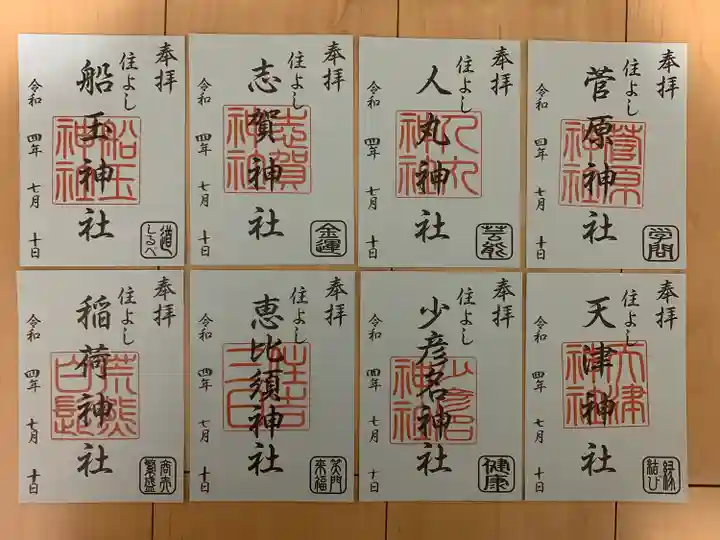 奉拝
船玉神社
船玉神社
令和 四年 七月 十日
道しるべ
奉拝
住よし
志賀神社
志賀神社
令和 四年 七月 十日
金運
奉拝
住よし
人丸神社
人丸神社
令和 四年 七月 十日
芸能
奉拝
住よし
菅原神社
菅原神社
令和 四年 七月 十日
学問
奉拝
住よし
稲荷神社
令和 四年 七月 十日
商売繁盛
奉拝
住よし
恵比須神社
令和 四年 七月 十日
笑門来福
奉拝
住よし
少彦名神社
少彦名神社
令和 四年 七月 十日
健康
奉拝
住よし
天津神社
天津神社
令和 四年 七月 十日
縁結び